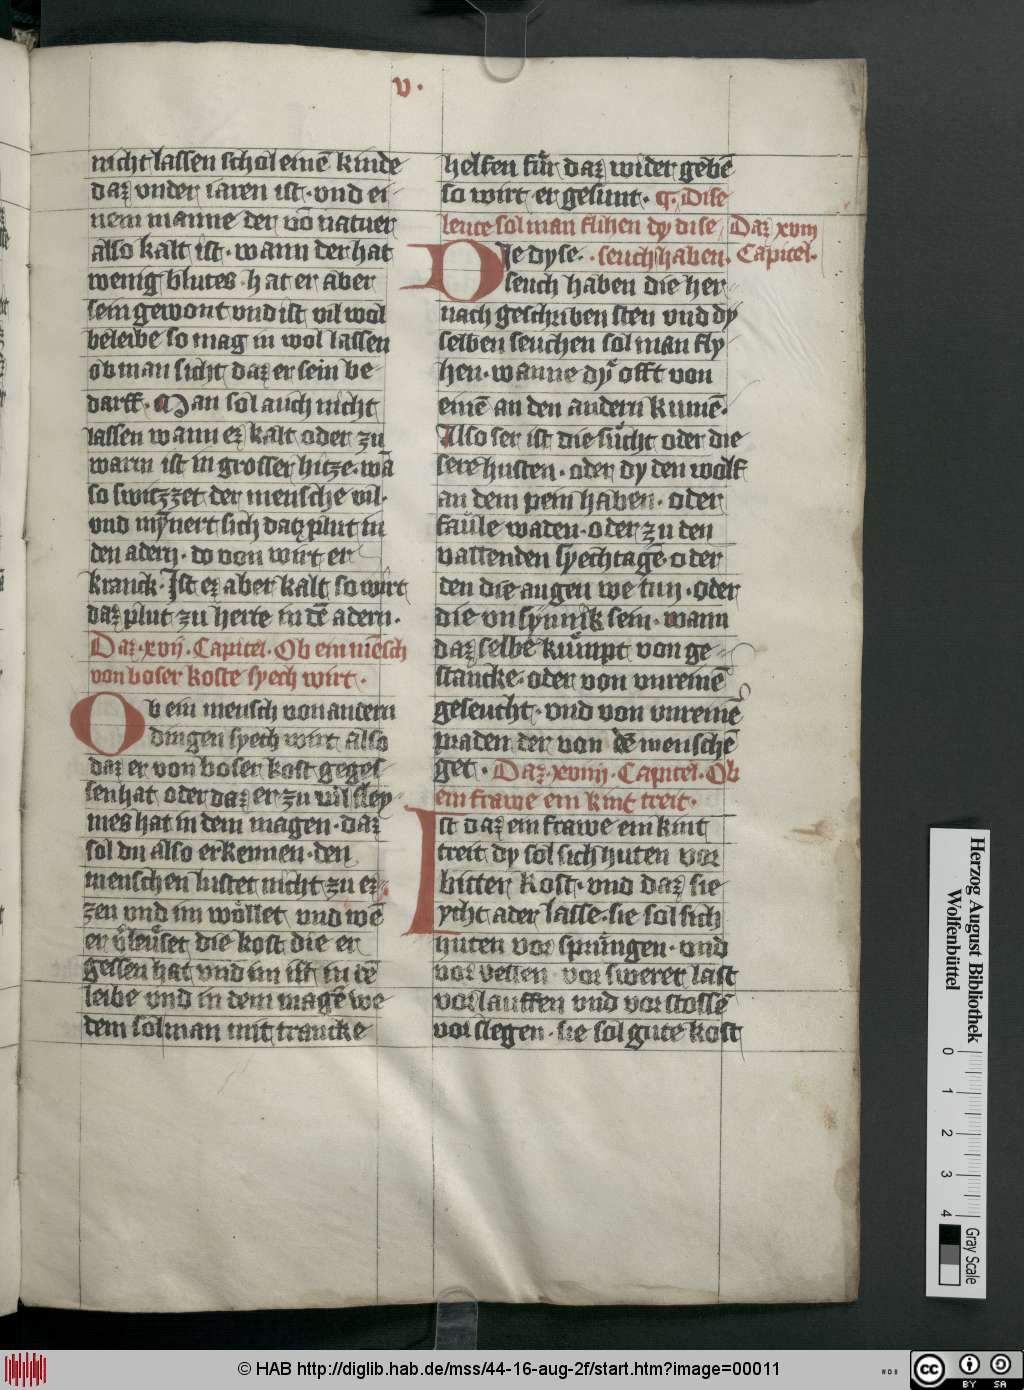 v.
nicht lassen schol einē kinde
daz vnder iaren ist · vnd ei-
nem manne der vō natuer
also kalt ist · wann der hat
wenig blutes · hat er aber
sein gewont vnd ist vil wol
beleibe so mag in wol lassen
ob man sicht daz er sein be-
darff · Man sol auch nicht
lassen wann ez kalt oder zu
warm ist in grosser hitze · wā
so switzzet der mensche vil ·
vnd mȳnert sich daz plut in
den adern · do von wirt er
kranck · Ist ez aber kalt so wirt
daz plut zu herte in dē adern ·
Daz · xvij · Capitel · Ob ein mēsch
von boser koste syech wirt ·
Ob ein mensch von andern
dingen syech wirt also
daz er von boser kost geges-
sen hat oder daz er zu vil sley-
mes hat in dem magen · daz
sol du also erkennen · den
menschen lustet nicht zu ez-
zen vnd im wöllet vnd wē
er die kost die er
gessen hat vnd im ist in dē
leibe vnd in dem magē we
dem sol man mit trancke
helfen für daz wider gebē
so wirt er gesunt · ¶ · Dise
leute sol man flihen dy dise Daz xviij
seuch haben · Capitel ·
Die dyse
seuch haben die her-
nach geschriben sten vnd dy
selben seuchen sol man fly-
hen · wanne dy offt von
einē an den andern kumē ·
Also ser ist die sucht oder die
sere husten · oder dy den wolf
an dem pein haben · oder
faule waden · oder zu den
vallenden syechtagē oder
den die augen we tun · oder
die vnsynnik sein · wann
daz selbe kumpt von ge-
stancke · oder von vnreinē
geseucht · vnd von vnreinē
praden der von dē menschē
get · Daz · xviiij · Capitel · Ob
ein frawe ein kint treit ·
Ist daz ein frawe ein kint
treit dy sol sich huten vor
bitter kost · vnd daz sie
ycht ader lasse · sie sol sich
huten vor sprüngen · vnd
vor vessen vor sweret last
vor lauffen vnd vor stossē
vor slegen · sie sol gute kost
Herzog August Bibliothek
Wolfenbüttel
0 1 2 3 4
Gray Scale
© HAB http://diglib.hab.de/mss/44-16-aug-2f/start.htm?image=00011
cc BY SA